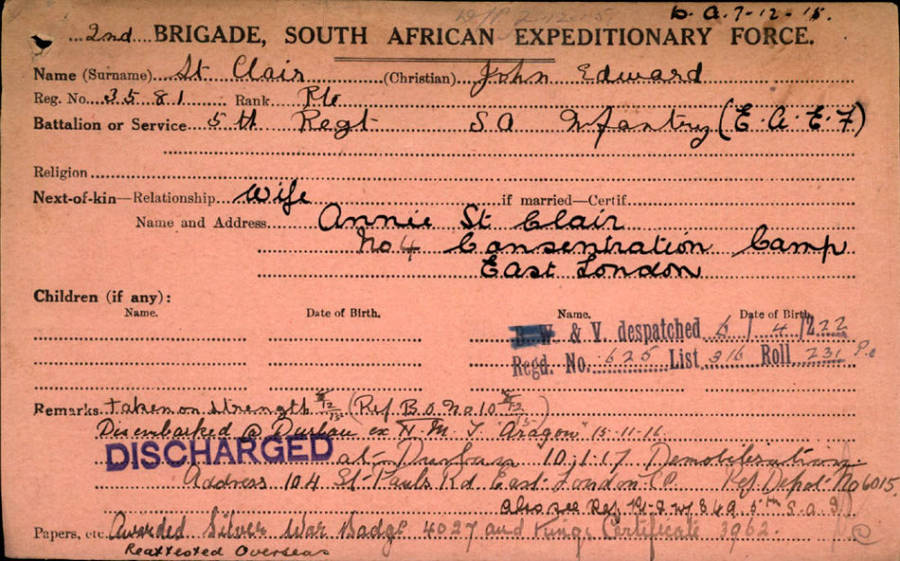 D. A. 7-12-15.
2nd BRIGADE, SOUTH AFRICAN EXPEDITIONARY FORCE.
Name (Surname) St Clair (Christian) John Edward
Reg. No. 3581 Rank Pte
Battalion or Service 5th Regt S A Infantry (E. A. E. F)
Religion
Next-of-kin—Relationship Wife if married—Certif.
Name and Address Annie St Clair
No 4 Consentration Camp
East London
Children (if any):
Name. Date of Birth. Name. Date of Birth.
B.W. & V. despatched 6 / 4 /222
Regd. No. 625 List 316 Roll 231
Remarks Taken on Strength (Ref B.O. No 10
Disembarked @ Durban ex H. M. T "Aragon" 15-11-16
DISCHARGED at Durban 10.1.17 Demobilisation.
Address 104 St Pauls Rd East London CP Ref Depot No 6015
Also see Ref
Papers, etc. Awarded Silver War Badge 4027 and Kings Certificate 3962.
Reattested Overseas